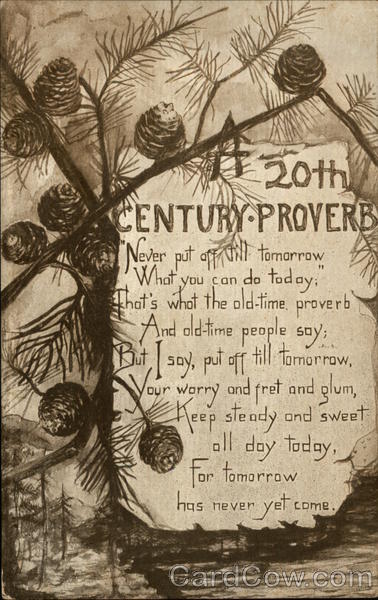 A
20th
CENTURY·PROVERB
"Never put off till tomorrow
What you can do today;"
That's what the old-time proverb
And old-time people say;
But I say, put off till tomorrow,
Your worry and fret and glum,
Keep steady and sweet
all day today,
For tomorrow
has never yet come.
CardCow.com